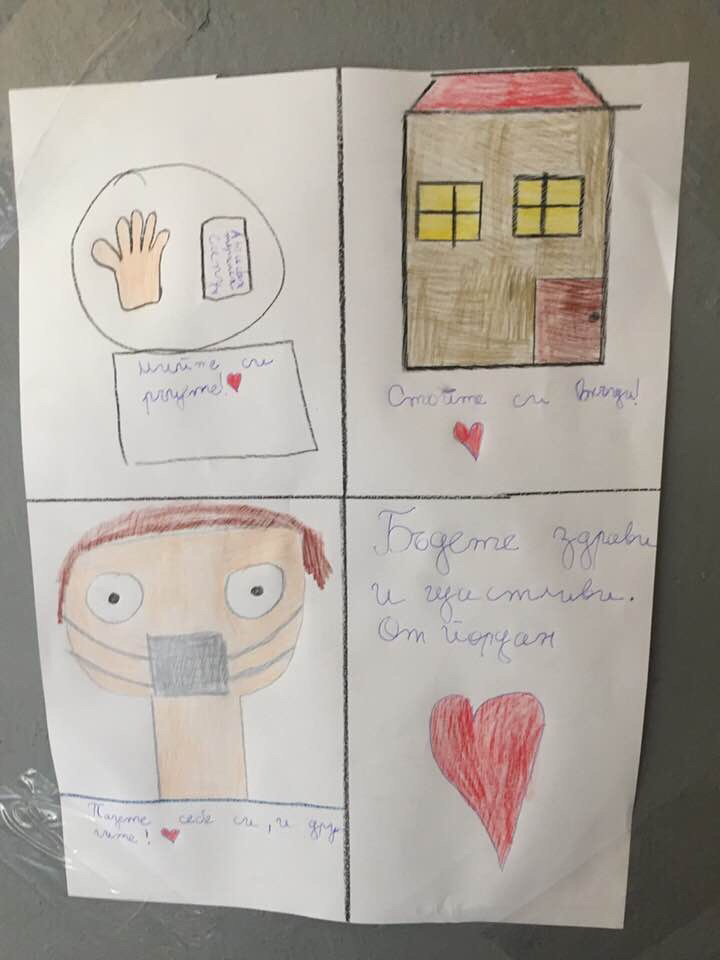 Мийте си
ръцете!
Стойте си вкъщи!
Пазете себе си, и дру
гите!
Бъдете здрави
и щастливи.
От Йордан